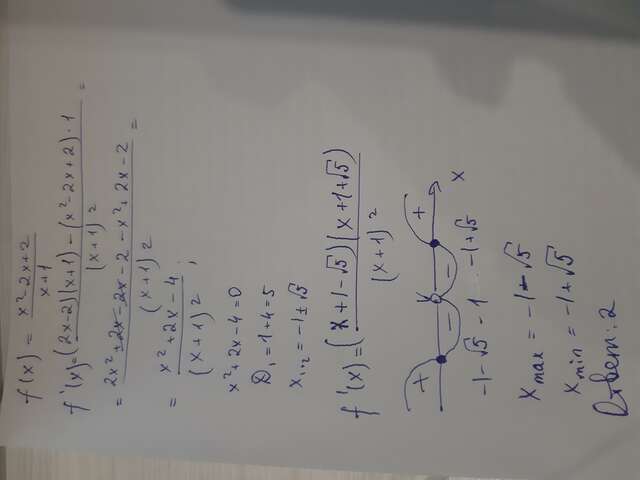 f(x) = (x² - 2x + 2)/(x + 1)
f'(x) = ((2x-2)(x+1) - (x² - 2x + 2)·1)/(x+1)² =
= (2x² + 2x - 2x - 2 - x² + 2x - 2)/(x+1)² =
= (x² + 2x - 4)/(x+1)² ;
x² + 2x - 4 = 0
D₁ = 1 + 4 = 5
x₁,₂ = -1 ± √5
f'(x) = ((x+1-√5)(x+1+√5))/(x+1)²
+ - - +
-1-√5 -1 -1+√5 x
x max = -1-√5
x min = -1+√5
Ответ: 2